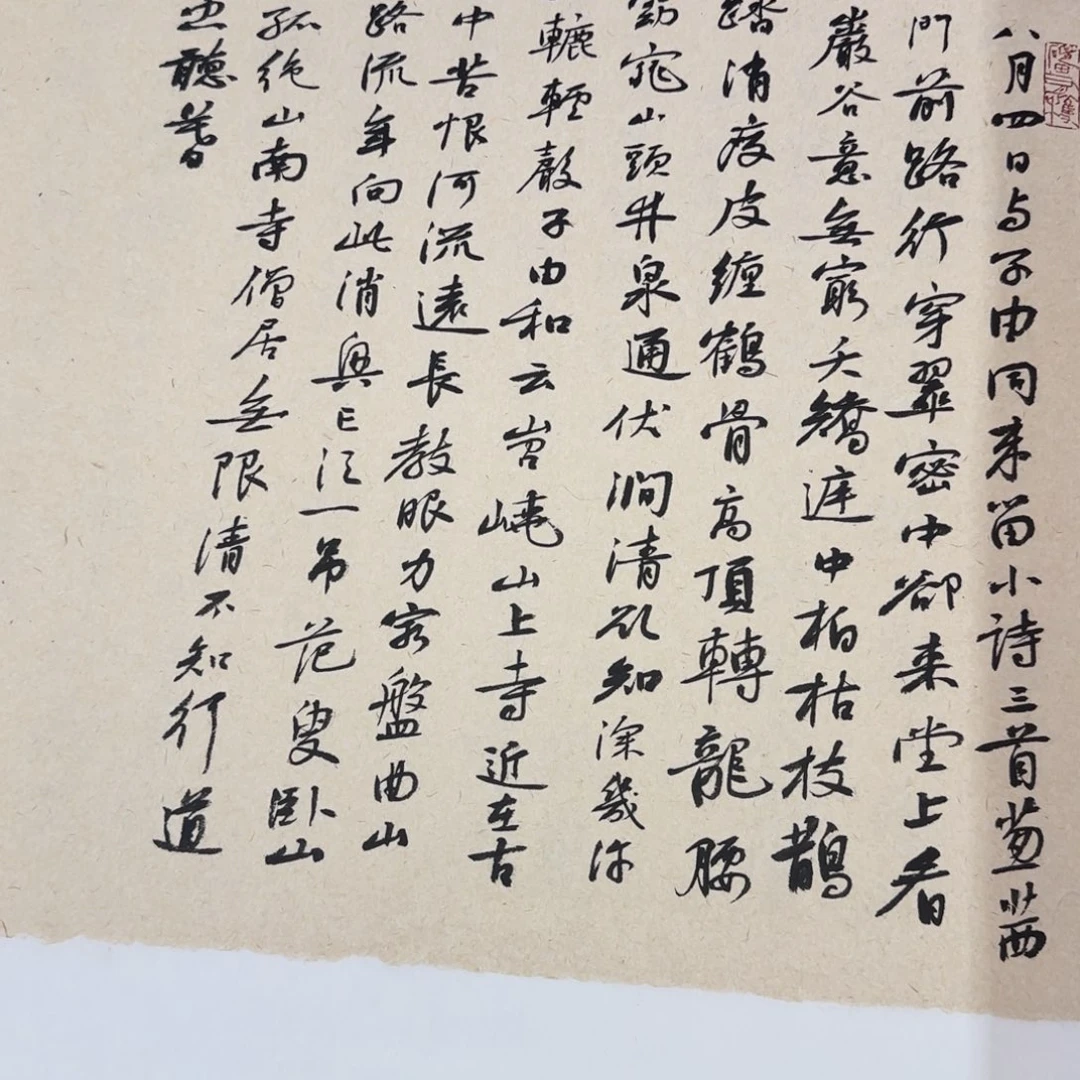 八月四日与子由同来留小詩三首葱茜
門前路行穿翠密中卻来堂上看
巖谷意無窮夭矯庭中柏枯枝鵲
踏消瘦皮缠鶴骨高頂轉龍腰
窈窕山頭井泉通伏澗清欲知深幾许
轆轤聲子由和云岧嶢山上寺近在古
中苦恨河流遠長教眼力窮盤曲山
路流年向此消興亡須一吊范叟卧山
孤绝山南寺僧居無限清不知行道
空聽暮